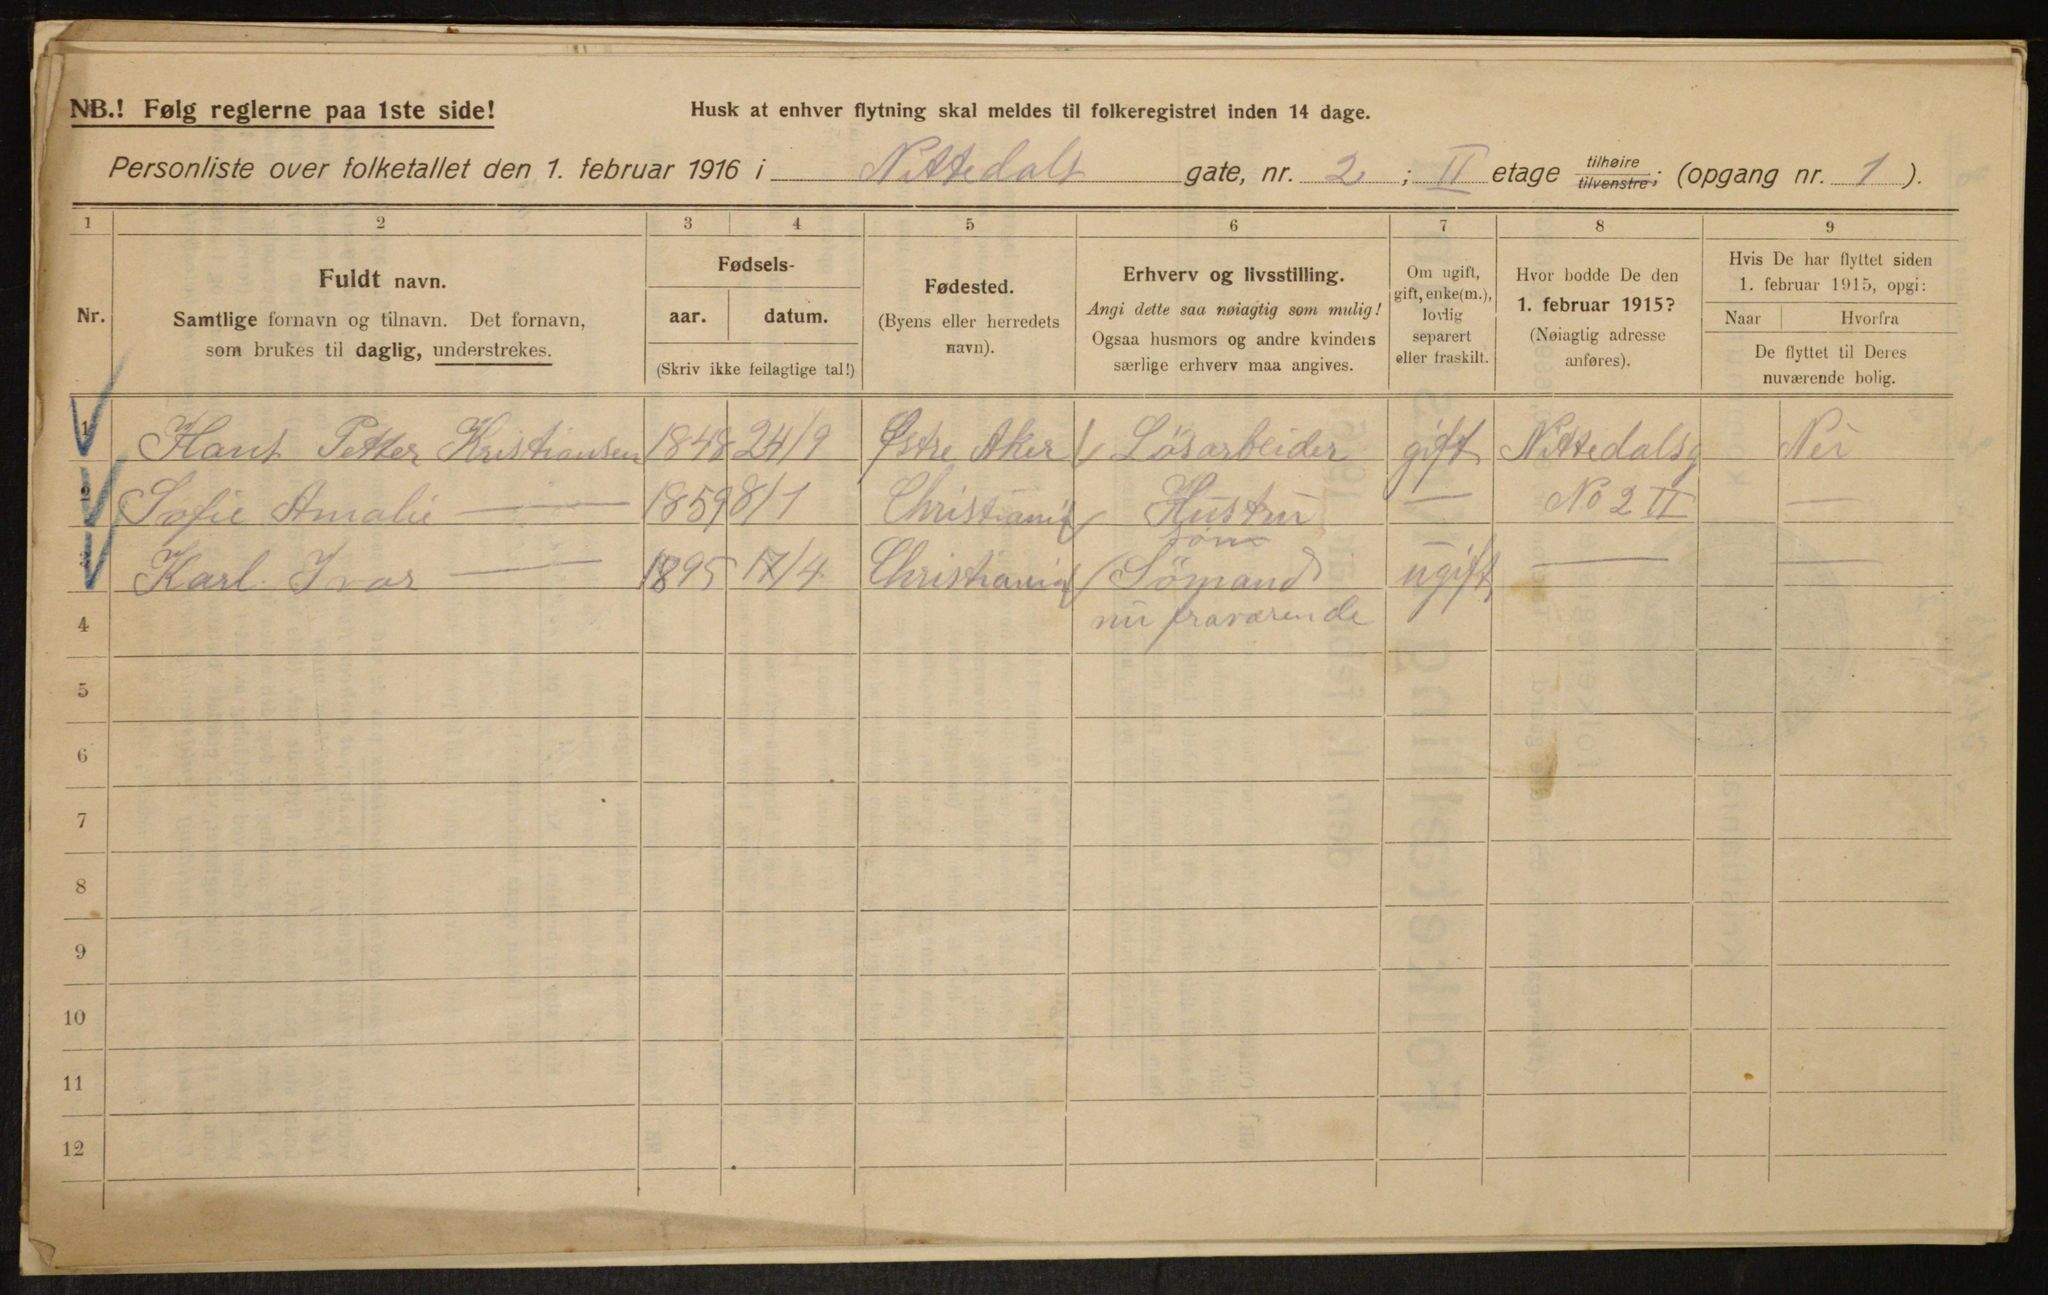 NB.! Følg reglerne paa 1ste side!
Husk at enhver flytning skal meldes til folkeregistret inden 14 dage.
Personliste over folketallet den 1. februar 1916 i Nittedals gate, nr. 2 ; II etage tilhøire tilvenstre; (opgang nr. 1 ).
1 2 3 4 5 6 7 8 9
Nr.
Fuldt navn.
Samtlige fornavn og tilnavn. Det fornavn,
som brukes til daglig, understrekes.
Fødsels-
aar. datum.
(Skriv ikke feilagtige tal!)
Fødested.
(Byens eller herredets
navn).
Erhverv og livsstilling.
Angi dette saa nøiagtig som mulig!
Ogsaa husmors og andre kvinders
særlige erhverv maa angives.
Om ugift,
gift, enke(m.),
lovlig
separert
eller fraskilt.
Hvor bodde De den
1. februar 1915?
(Nøiagtig adresse
anføres).
Hvis De har flyttet siden
1. februar 1915, opgi:
Naar Hvorfra
De flyttet til Deres
nuværende bolig.
1 Hans Petter Kristiansen 1848 24/9 Østre Aker Løsarbeider gift Nittedalsg Nei
2 Sofie Amalie — 1859 8/1 Christiania Hustru — No 2 II —
søn
3 Karl Ivar — 1895 17/4 Christiania Sömand ugift — —
4 nu fraværende
5
6
7
8
9
10
11
12